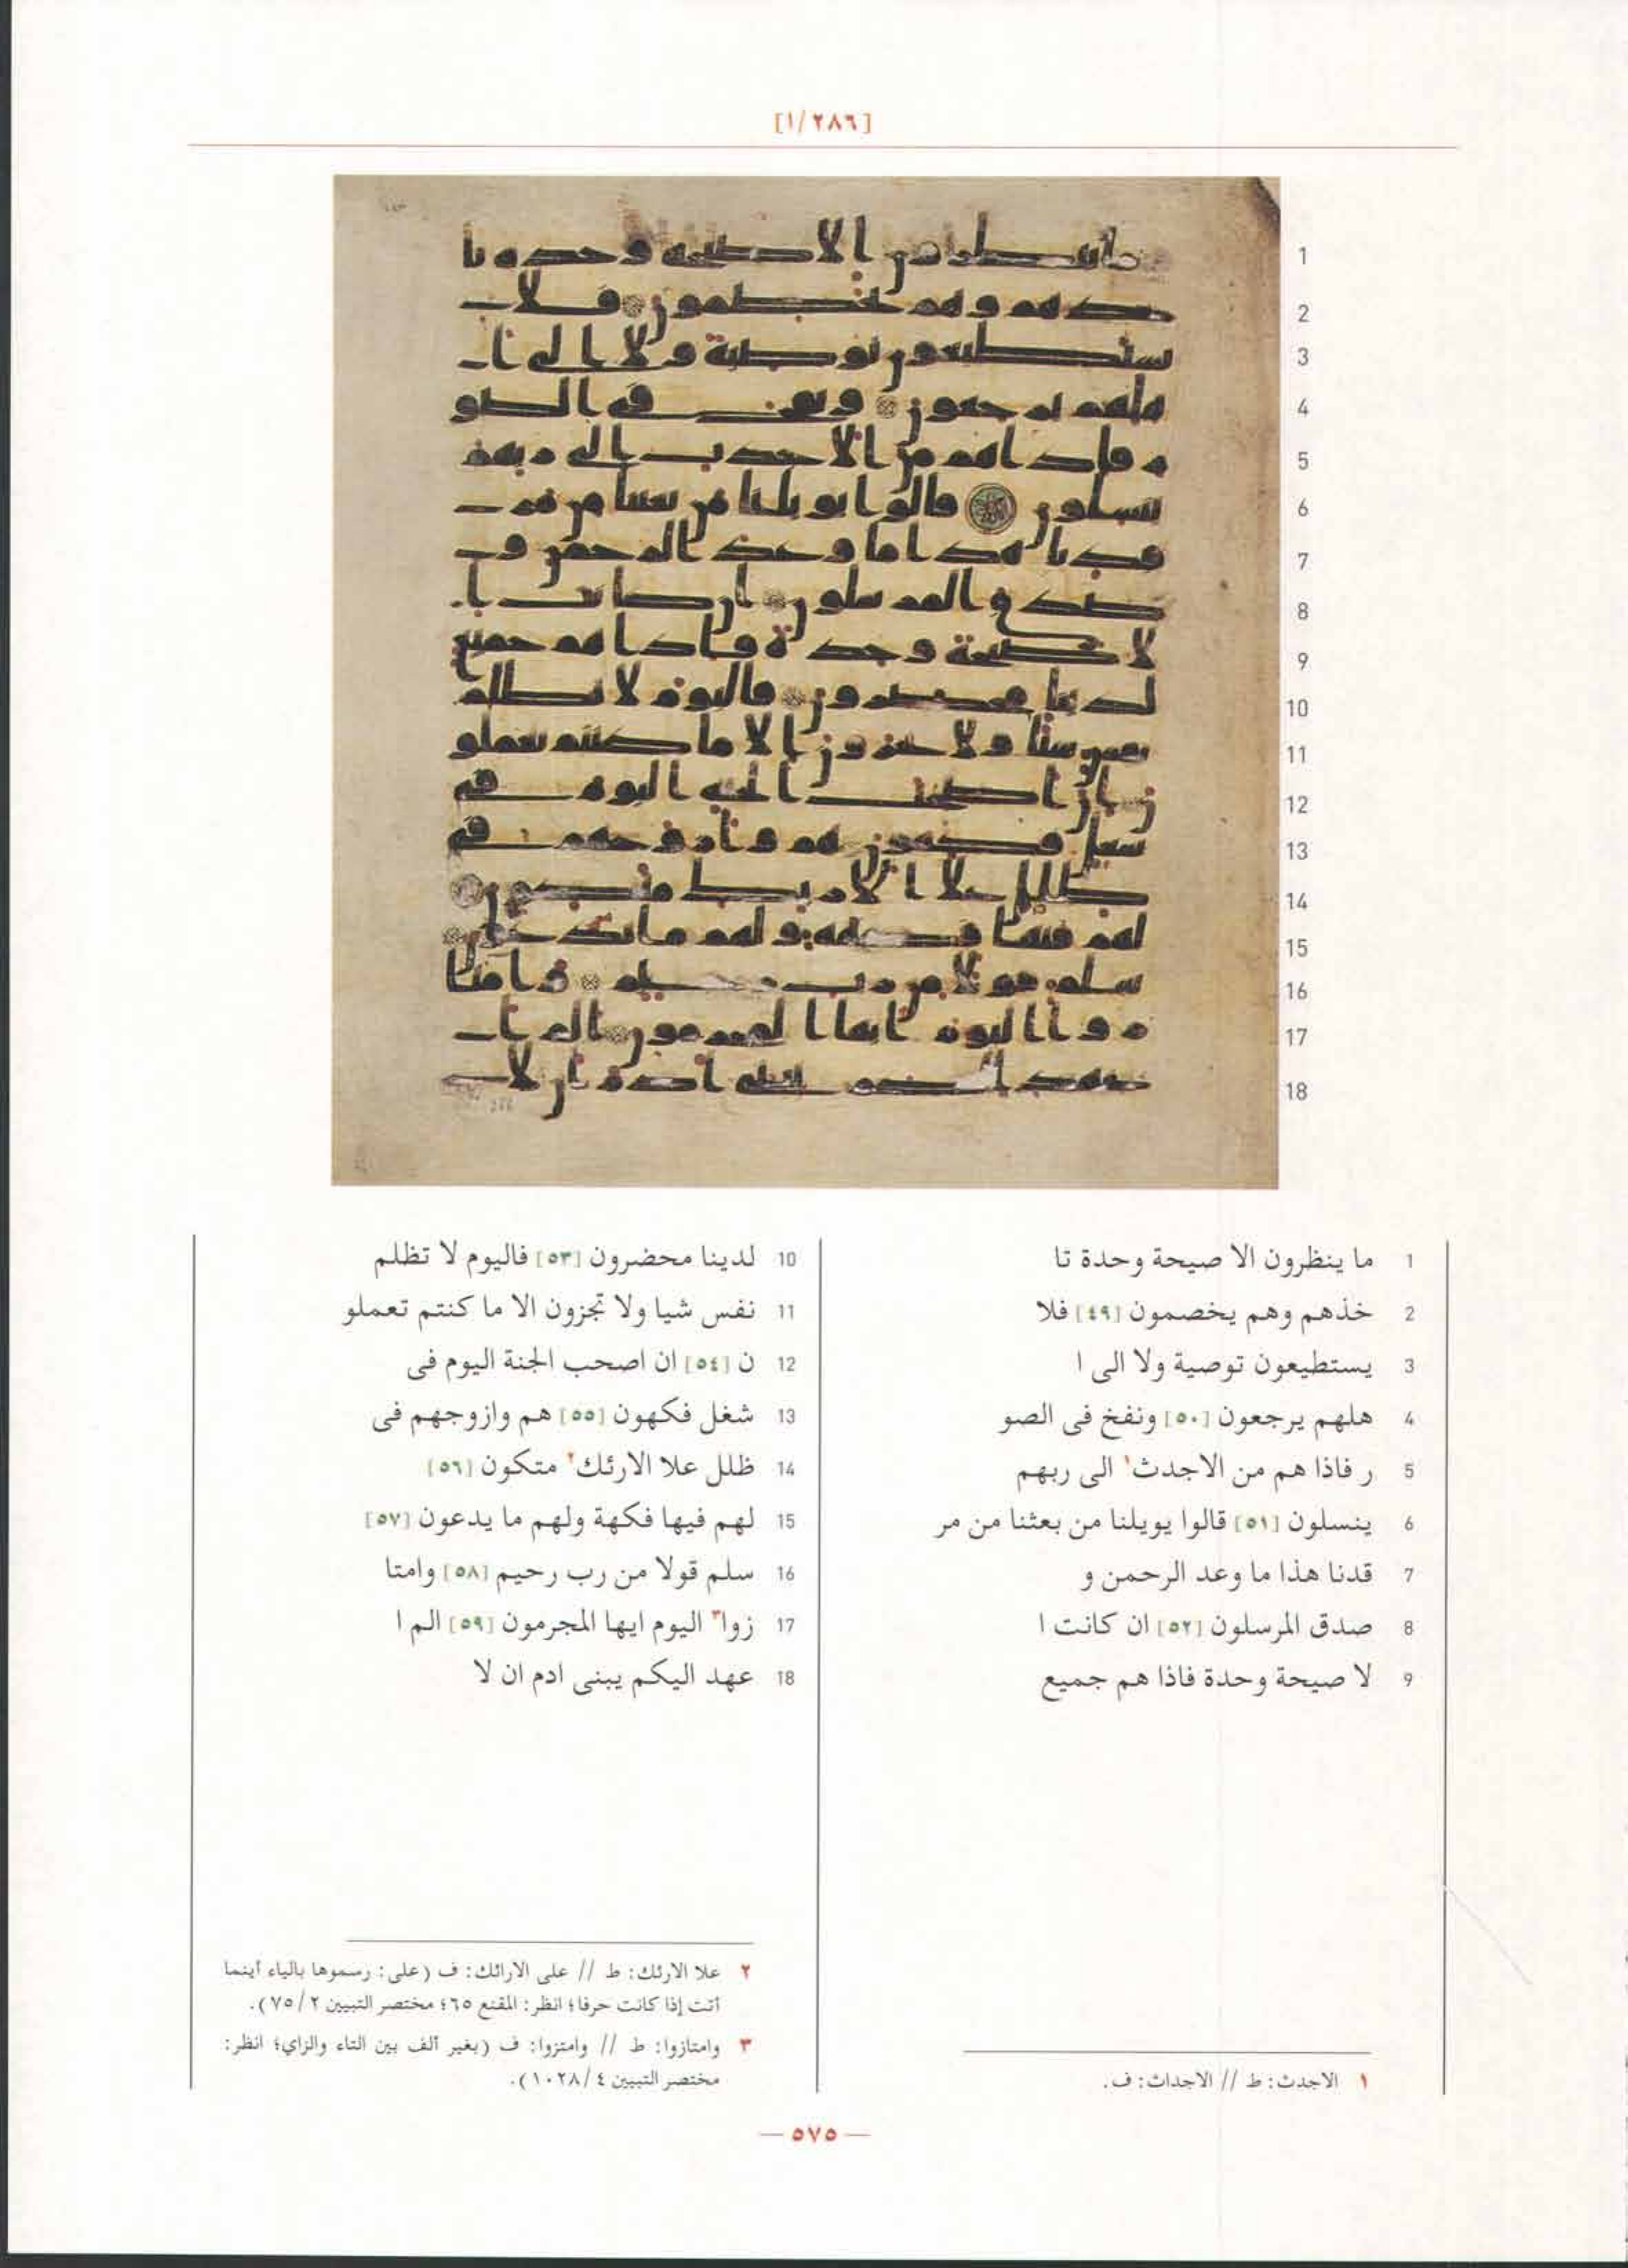 [٢٨٦/١]
1
2
3
4
5
6
7
8
9
10
11
12
13
14
15
16
17
18
1 ما ينظرون الا صيحة وحدة تا
2 خذهم وهم يخصمون [٤٩] فلا
3 يستطيعون توصية ولا الى ا
4 هلهم يرجعون [٥٠] ونفخ فى الصو
5 ر فاذا هم من الاجدث١ الى ربهم
6 ينسلون [٥١] قالوا يويلنا من بعثنا من مر
7 قدنا هذا ما وعد الرحمن و
8 صدق المرسلون [٥٢] ان كانت ا
9 لا صيحة وحدة فاذا هم جميع
١ الاجدث: ط // الاجداث: ف.
10 لدينا محضرون [٥٣] فاليوم لا تظلم
11 نفس شيا ولا تجزون الا ما كنتم تعملو
12 ن [٥٤] ان اصحب الجنة اليوم فى
13 شغل فكهون [٥٥] هم وازوجهم فى
14 ظلل علا الارئك٢ متكون [٥٦]
15 لهم فيها فكهة ولهم ما يدعون [٥٧]
16 سلم قولا من رب رحيم [٥٨] وامتا
17 زوا٣ اليوم ايها المجرمون [٥٩] الم ا
18 عهد اليكم يبنى ادم ان لا
٢ علا الارئك: ط // على الارائك: ف (على: رسموها بالياء أينما
أتت إذا كانت حرفا؛ انظر: المقنع ٦٥؛ مختصر التبيين ٧٥/٢).
٣ وامتازوا: ط // وامتزوا: ف (بغير ألف بين التاء والزاي؛ انظر:
مختصر التبيين ١٠٢٨/٤).
— ٥٧٥ —